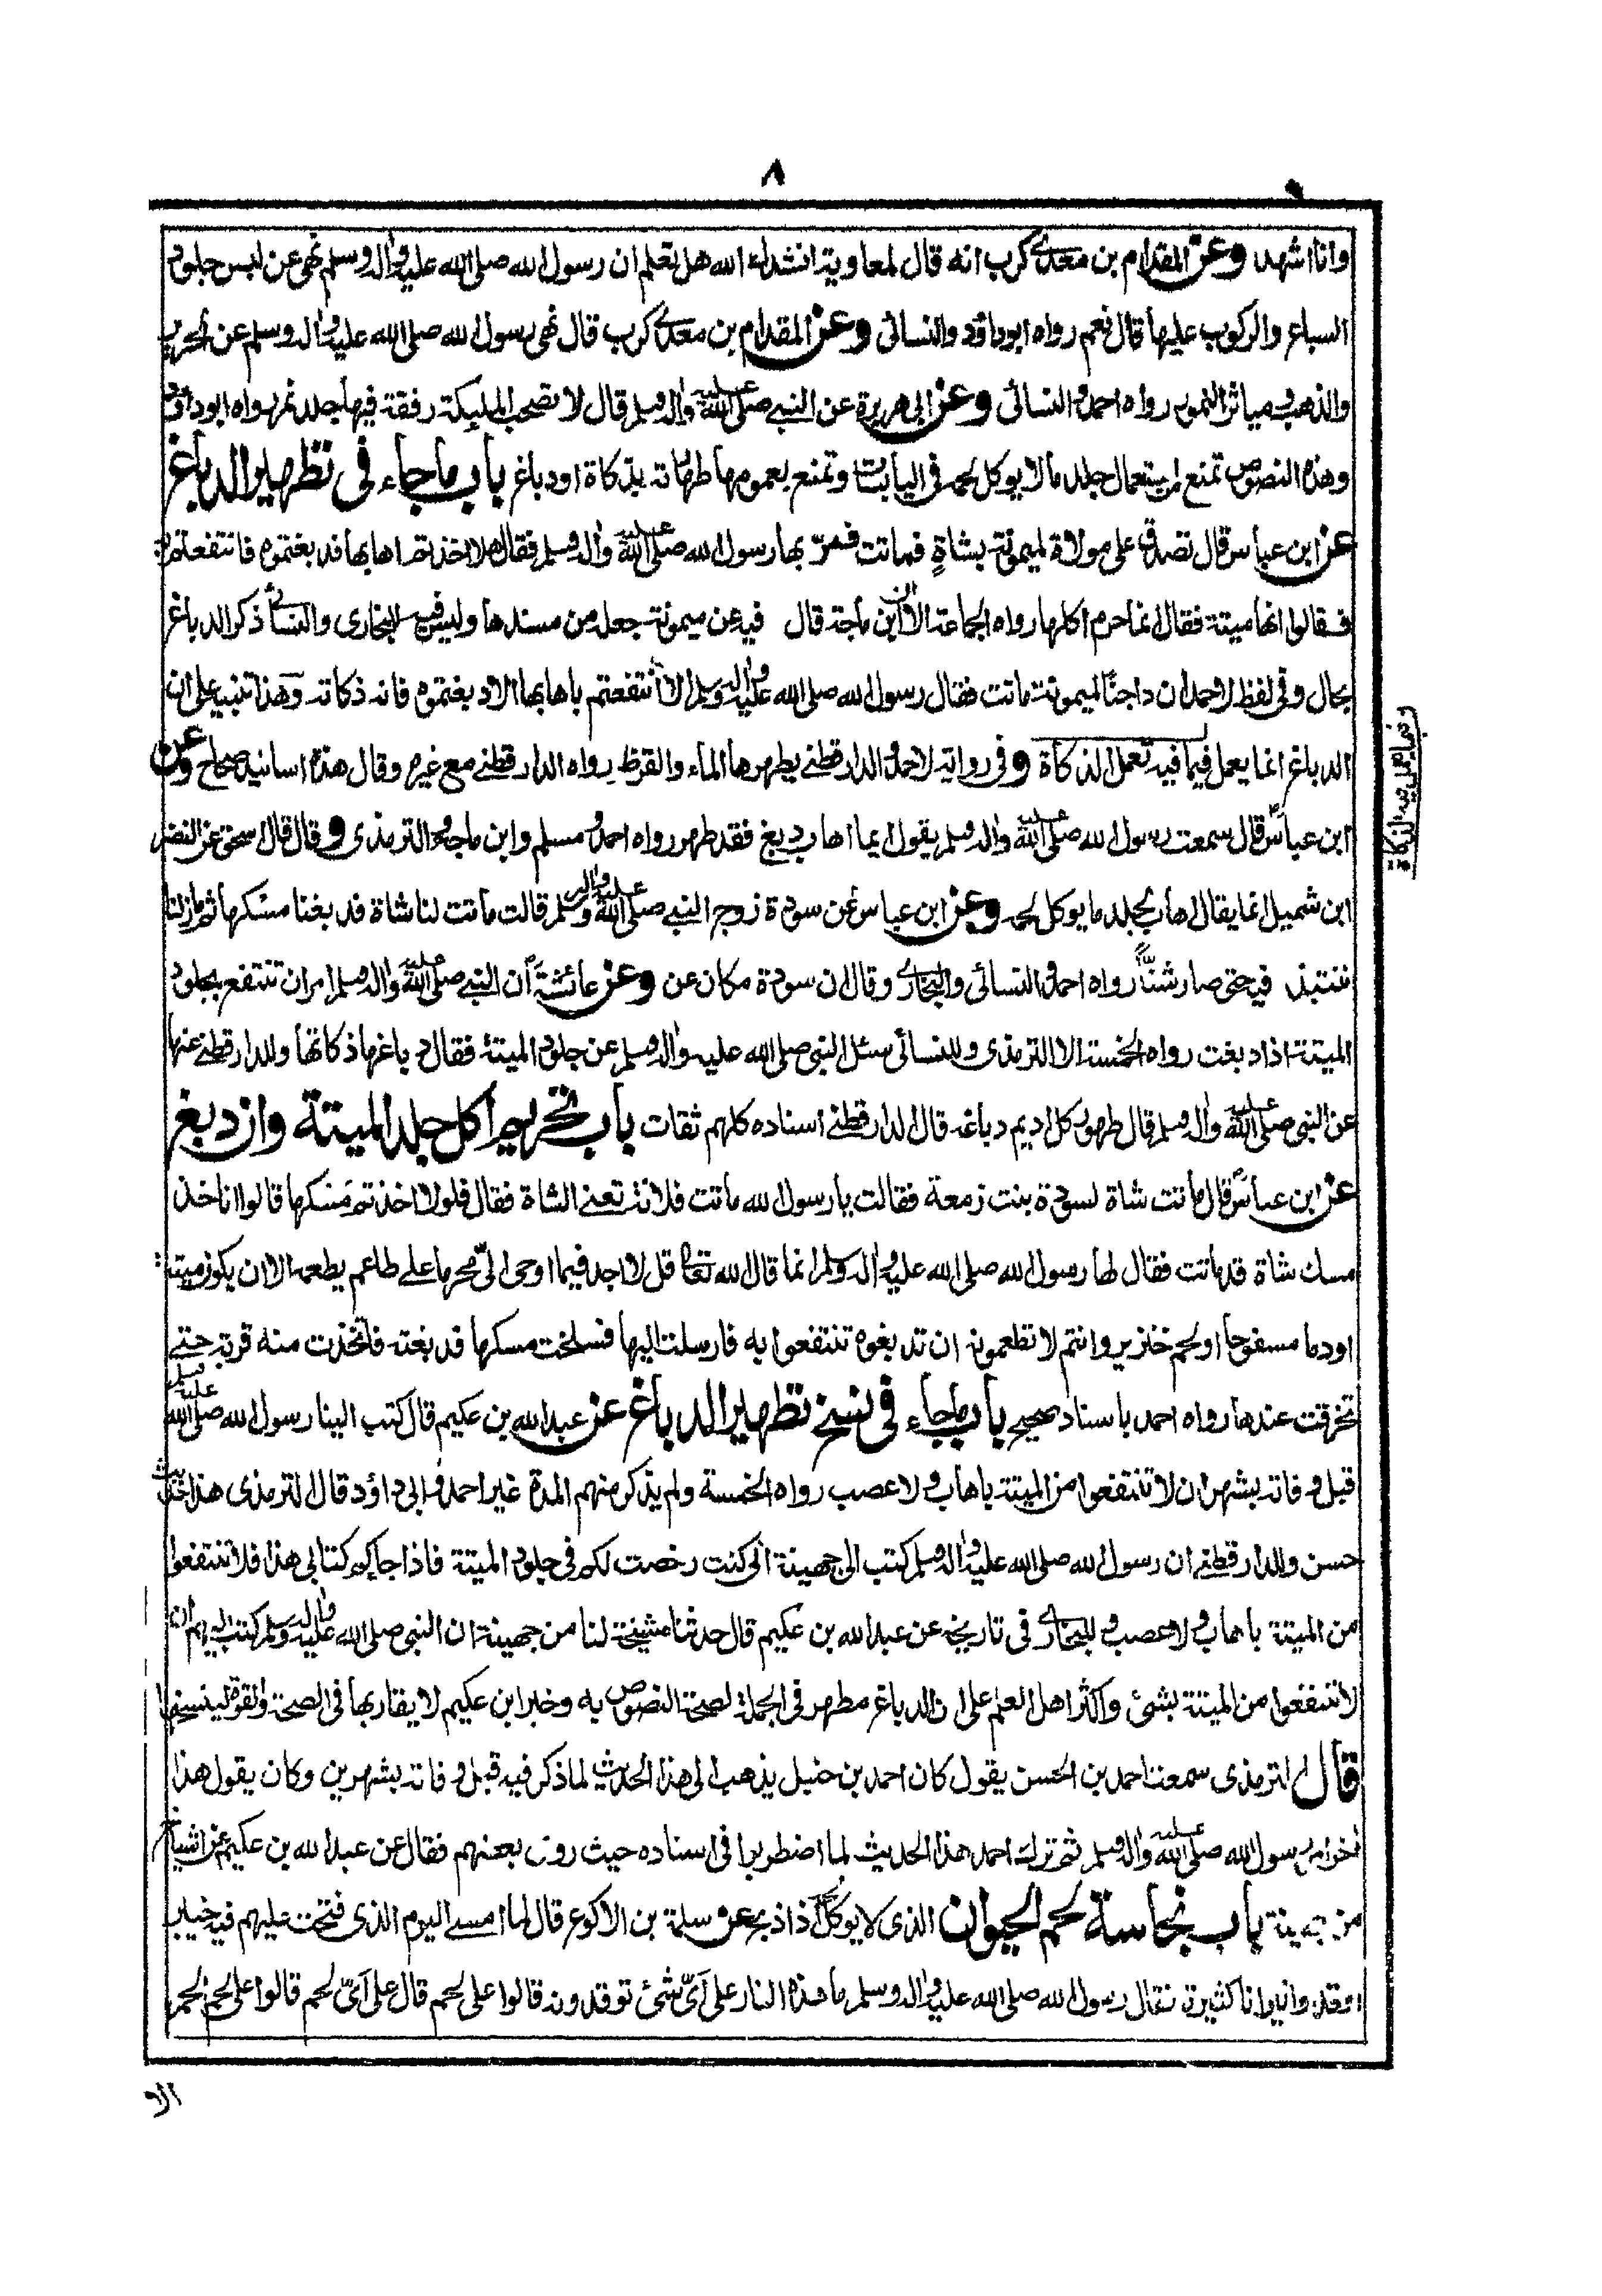 ٨
وانا اشهد وعن المقدام بن معدي كرب انه قال لمعاوية انشدك الله هل تعلم ان رسول الله صلى الله عليه واٰله وسلم نهى عن لبس جلود
السباع والركوب عليها قال نعم رواه ابوداؤد والنسائى وعن المقدام بن معدي كرب قال نهى رسول الله صلى الله عليه واٰله وسلم عن الحرير
والذهب ومياثر النمور رواه احمد والنسائى وعن ابى هريرة عن النبي صلى الله عليه واٰله وسلم قال لا تصحب الملٰئكة رفقة فيها جلد نمر رواه ابوداؤد
وهذه النصوص تمنع استعمال جلد ما لا يوكل لحمه فى اليابسات وتمنع بعمومها طهارته بذكاة او دباغ باب ما جاء فى تطهير الدباغ
عن ابن عباس قال تصدق على مولاة لميمونة بشاةٍ فماتت فمرّ بها رسول الله صلى الله عليه واٰله وسلم فقال هلا اخذتم اهابها فدبغتموه فانتفعتم به
فقالوا انها ميتة فقال انما حرم اكلها رواه الجماعة الا ان ابن ماجة قال فيه عن ميمونة جعله من مسندها وليس فيه للبخارى والنسائي ذكر الدباغ
بحال وفى لفظ لاحمد ان داجنًا لميمونة ماتت فقال رسول الله صلى الله عليه واٰله وسلم الا انتفعتم باهابها الا دبغتموه فانه ذكاته وهذا تنبيه على ان
الدباغ انما يعمل فيما فيه تعمل الذكاة وفى رواية لاحمد والدارقطني يطهرها الماء والقرظ رواه الدارقطني مع غيره وقال هذه اسانيد صحاح وعن
ابن عباس قال سمعت رسول الله صلى الله عليه واٰله وسلم يقول ايما اهاب دبغ فقد طهر رواه احمد ومسلم وابن ماجة والترمذى وقال قال اسحٰق عن النضر
ابن شميل انما يقال اهاب لجلد ما يوكل لحمه وعن ابن عباس عن سودة زوج النبي صلى الله عليه واٰله وسلم قالت ماتت لنا شاة فدبغنا مسكها ثم ما زلنا
ننتبذ فيه حتى صار شنًّا رواه احمد والنسائى والبخاري وقال ان سودة مكان عن وعن عائشة ان النبي صلى الله عليه واٰله وسلم امر ان تنتفع بجلود
الميتة اذا دبغت رواه الخمسة الا الترمذى وللنسائى سئل النبى صلى الله عليه واٰله وسلم عن جلود الميتة فقال دباغها ذكاتها وللدارقطني عنها
عن النبى صلى الله عليه واٰله وسلم قال طهور كل اديم دباغه قال الدارقطني اسناده كلهم ثقات باب تحريم اكل جلد الميتة وان دبغ
عن ابن عباس قال ماتت شاة لسودة بنت زمعة فقالت يا رسول الله ماتت فلانة تعنى الشاة فقال فلولا اخذتم مسكها قالوا اناخذ
مسك شاة قد ماتت فقال لها رسول الله صلى الله عليه واٰله وسلم انما قال الله تعالى قل لا اجد فيما اوحى الىّ محرما على طاعم يطعمه الا ان يكون ميتة
او دما مسفوحا او لحم خنزير وانتم لا تطعمونه ان تدبغوه تنتفعوا به فارسلت اليها فسلخت مسكها فدبغته فاتخذت منه قربة حتى
تخرقت عندها رواه احمد باسناد صحيح باب ما جاء فى نسخ تطهير الدباغ عن عبد الله بن عكيم قال كتب الينا رسول الله صلى الله عليه وسلم
قبل وفاته بشهر ان لا تنتفعوا من الميتة باهاب ولا عصب رواه الخمسة ولم يذكر منهم المدة غير احمد وابى داؤد قال الترمذى هذا حديث
حسن وللدارقطني ان رسول الله صلى الله عليه واٰله وسلم كتب الى جهينة انى كنت رخصت لكم فى جلود الميتة فاذا جاءكم كتابى هذا فلا تنتفعوا
من الميتة باهاب ولا عصب وللبخاري فى تاريخه عن عبد الله بن عكيم قال حدثنا مشيخة لنا من جهينة ان النبى صلى الله عليه واٰله وسلم كتب اليهم ان
لا تنتفعوا من الميتة بشئ واكثر اهل العلم على ان الدباغ مطهر فى الجملة لصحة النصوص به وخبر ابن عكيم لا يقاربها فى الصحة والقوة لينسخها
قال الترمذى سمعت احمد بن الحسن يقول كان احمد بن حنبل يذهب الى هذا الحديث لما ذكر فيه قبل وفاته بشهرين وكان يقول هذا
اٰخر امر رسول الله صلى الله عليه واٰله وسلم ثم ترك احمد هذا الحديث لما اضطربوا فى اسناده حيث روى بعضهم فقال عن عبد الله بن عكيم عن اشياخ
من جهينة باب نجاسة لحم الحيوان الذى لا يوكل اذا ذبح عن سلمة بن الاكوع قال لما امسى اليوم الذى فتحت عليهم فيه خيبر
اوقدوا نيرانا كثيرة فقال رسول الله صلى الله عليه واٰله وسلم ما هذه النار على اىّ شئ توقدون قالوا على لحم قال على اىّ لحم قالوا على لحم الحمر